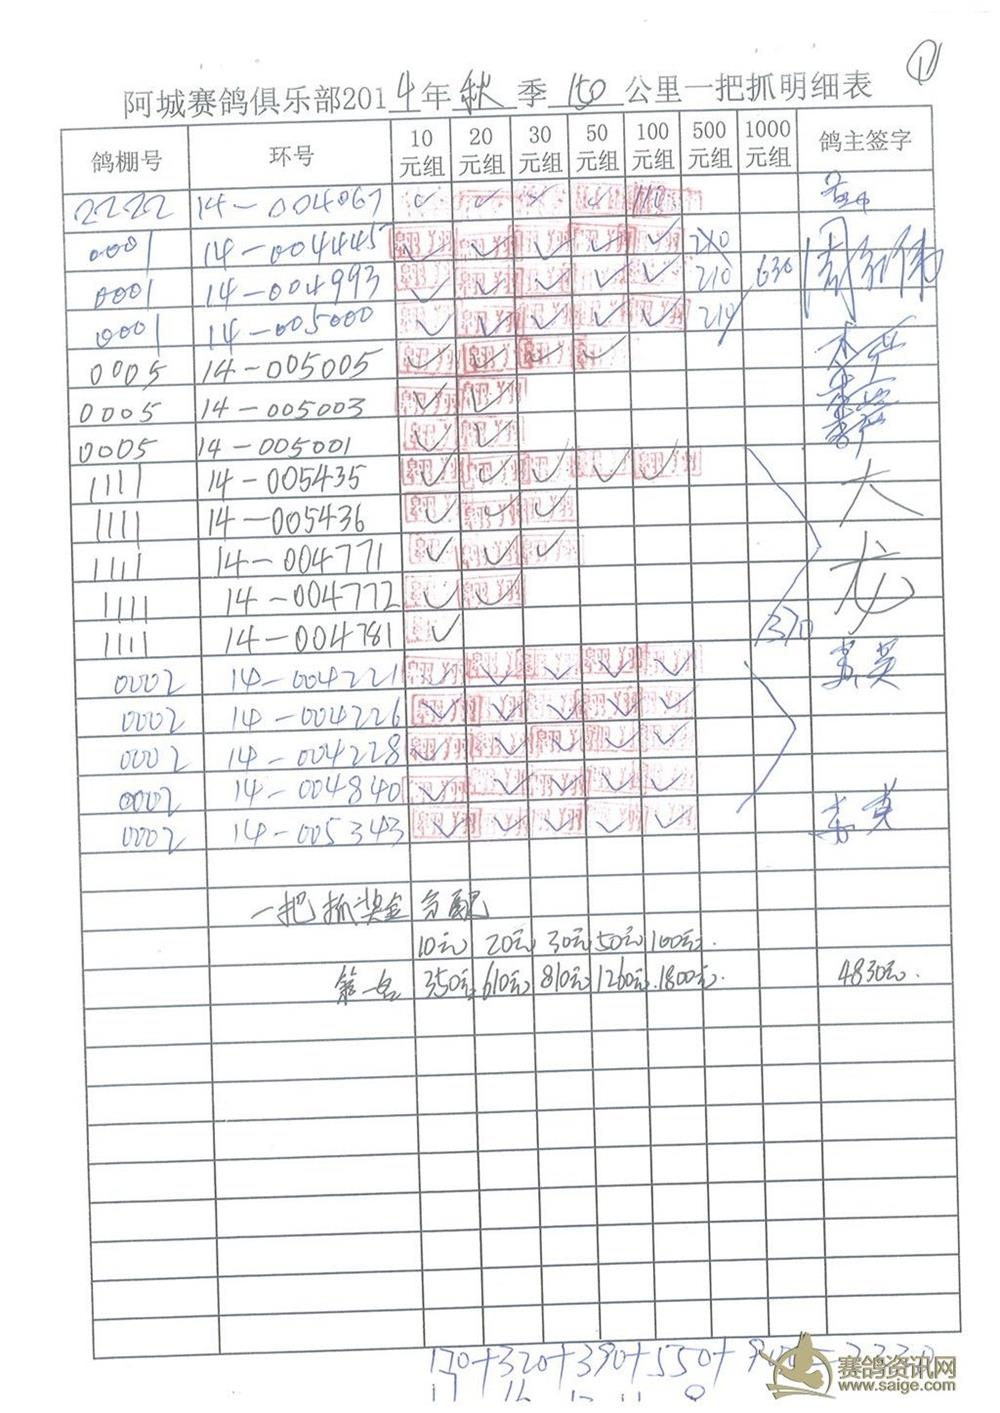 ①
阿城赛鸽俱乐部2014年 秋 季 150 公里一把抓明细表
鸽棚号 环号 10元组 20元组 30元组 50元组 100元组 500元组 1000元组 鸽主签字
2222 14-004067 ✓ ✓ ✓ ✓ 110
0001 14-004445 ✓ ✓ ✓ ✓ ✓ 210
0001 14-004993 ✓ ✓ ✓ ✓ ✓ 210 630
0001 14-005000 ✓ ✓ ✓ ✓ ✓ 210
0005 14-005005 ✓ ✓ ✓ ✓
0005 14-005003 ✓ ✓
0005 14-005001 ✓ ✓
1111 14-005435 ✓ ✓ ✓ ✓ ✓ 大
1111 14-005436 ✓ ✓ ✓
1111 14-004771 ✓ ✓ ✓ 龙
1111 14-004772 ✓ ✓
1111 14-004781 ✓ 370
0002 14-004221 ✓ ✓ ✓ ✓ ✓
0002 14-004226 ✓ ✓ ✓ ✓ ✓
0002 14-004228 ✓ ✓ ✓ ✓ ✓
0002 14-004840 ✓ ✓ ✓ ✓ ✓
0002 14-005343 ✓ ✓ ✓ ✓ ✓
一把抓奖金分配
10元 20元 30元 50元 100元.
第一名 350元 610元 810元 1260元. 1800元. 4830元.
170+320+390+550+900=2330
17 16 13 11 9
赛鸽资讯网
www.saige.com